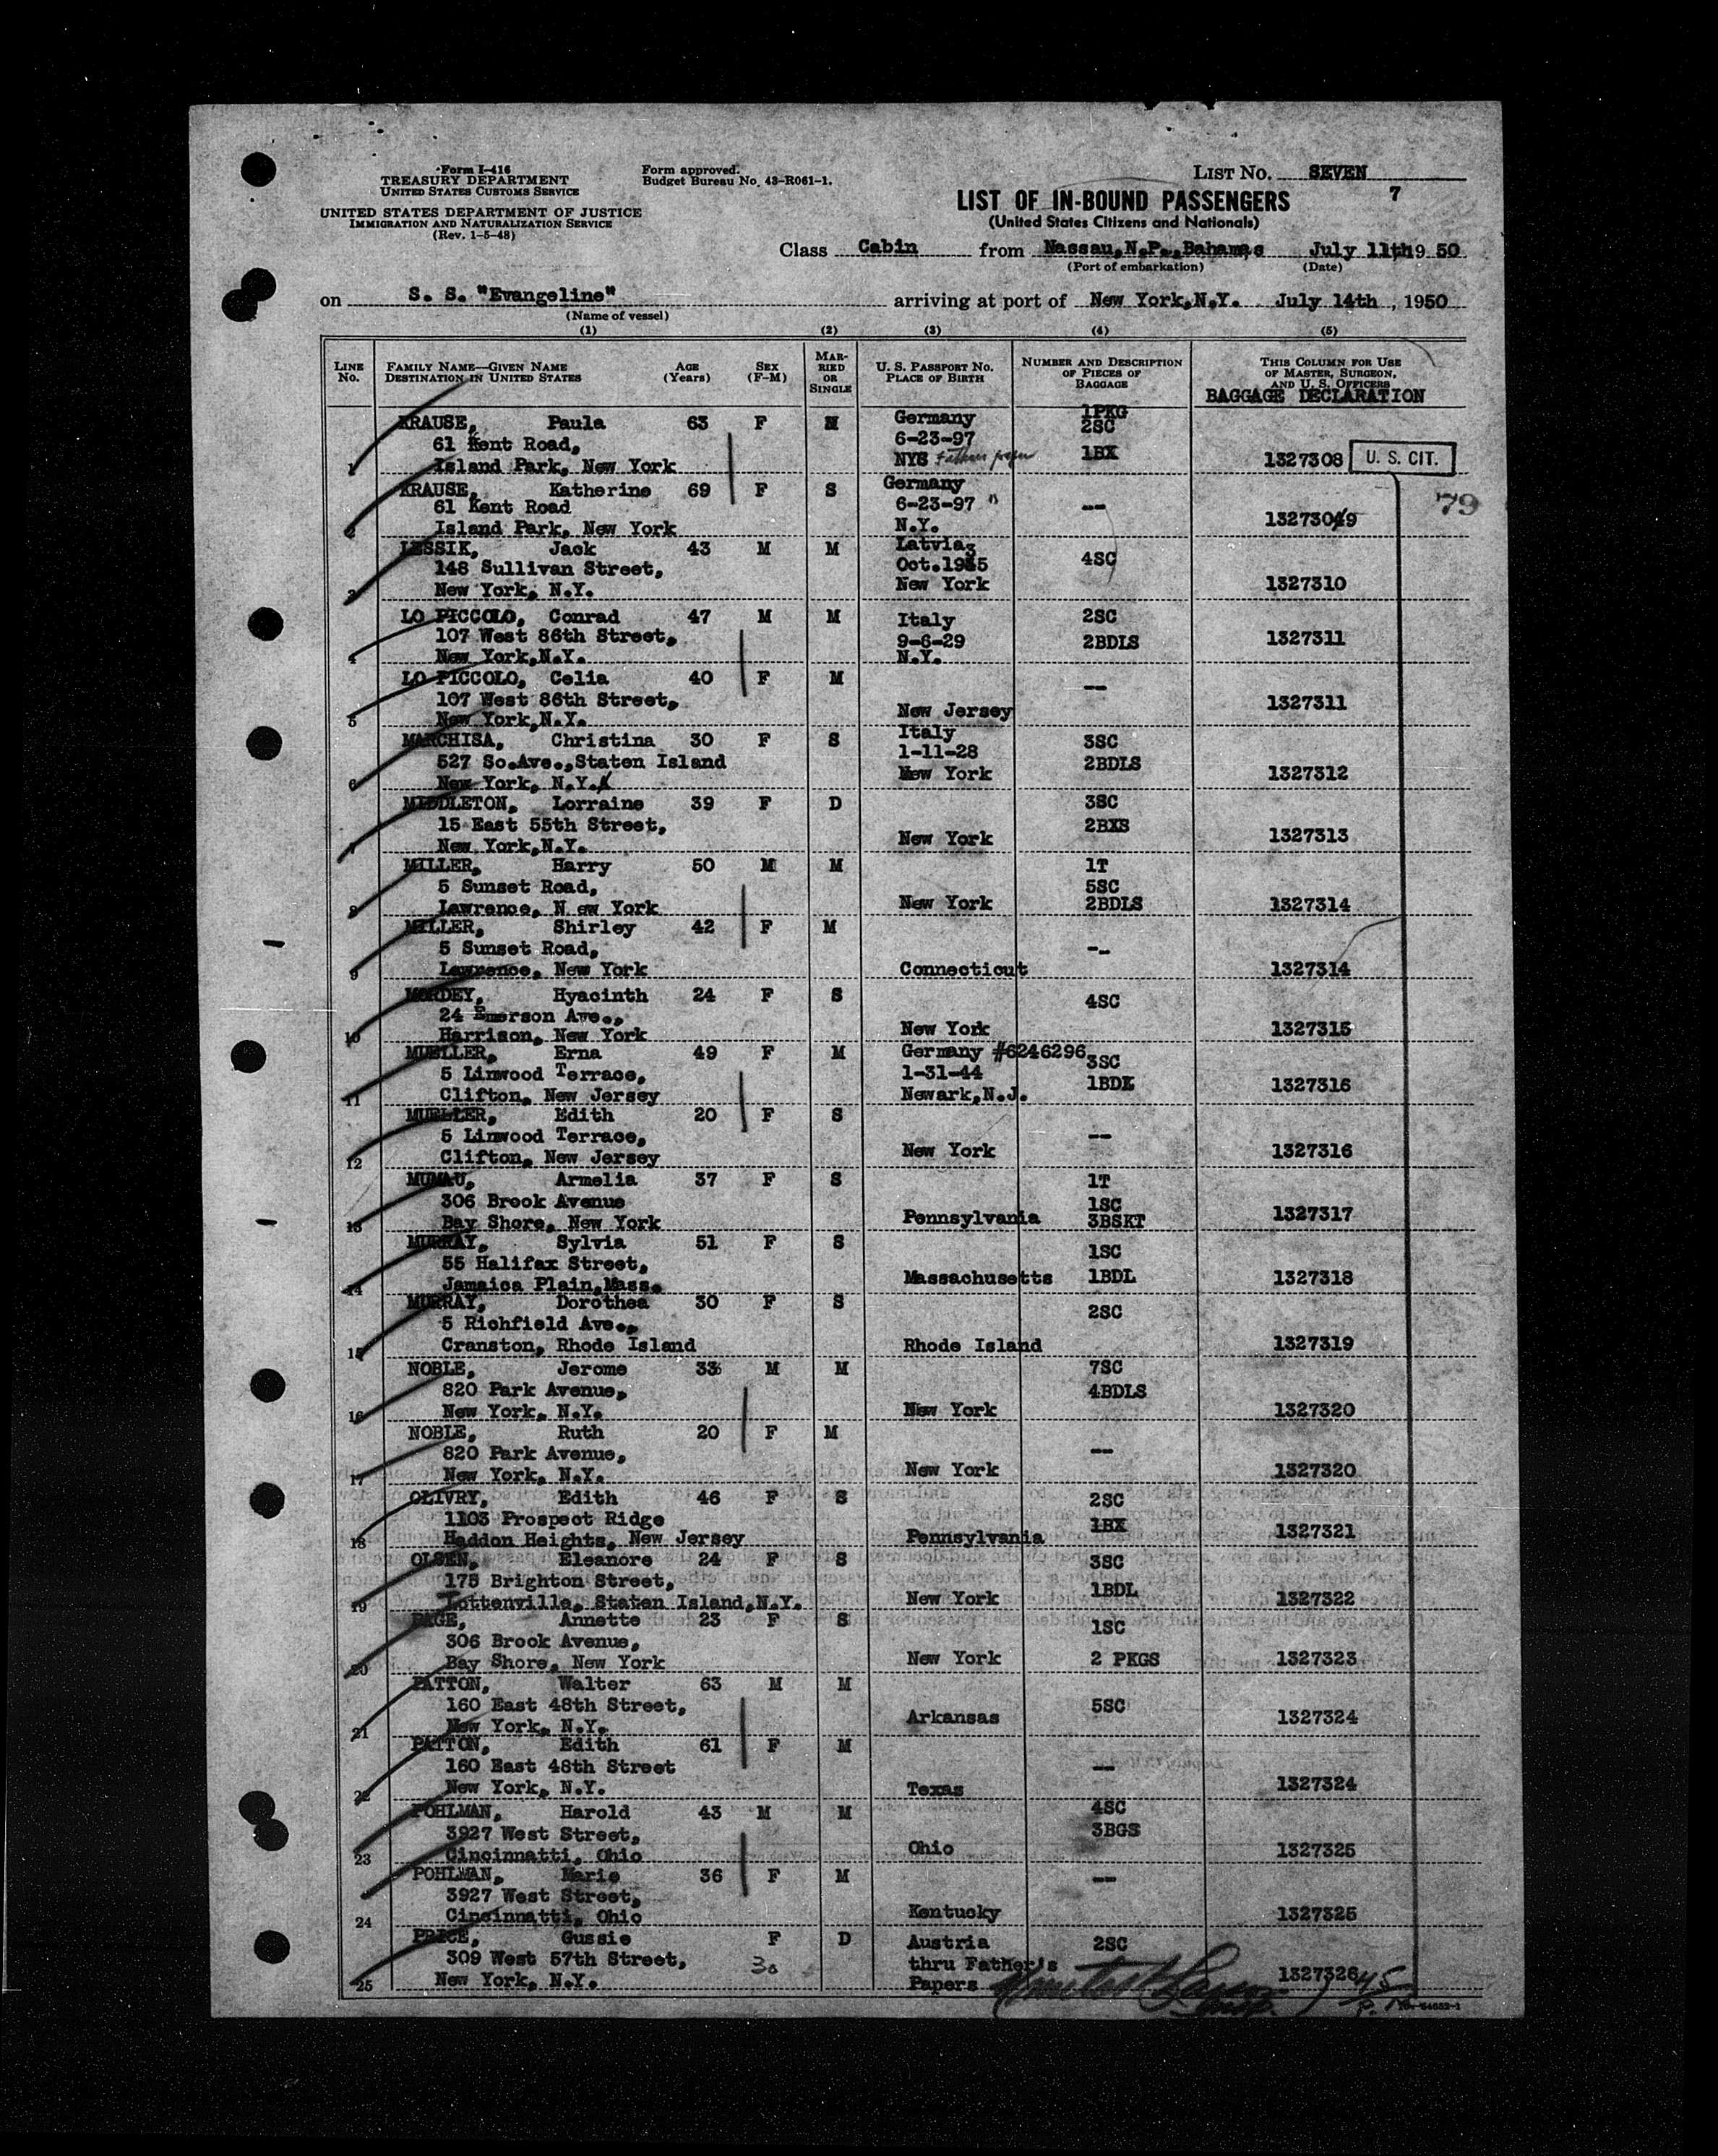 Form I-416
TREASURY DEPARTMENT
UNITED STATES CUSTOMS SERVICE
UNITED STATES DEPARTMENT OF JUSTICE
IMMIGRATION AND NATURALIZATION SERVICE
(Rev. 1-5-48)
Form approved.
Budget Bureau No. 43-R061-1.
LIST NO. SEVEN
7
LIST OF IN-BOUND PASSENGERS
(United States Citizens and Nationals)
Class Cabin from Nassau,N.P.,Bahamas July 11th 19 50
(Port of embarkation) (Date)
on S. S. "Evangeline" arriving at port of New York,N.Y. July 14th , 1950
(Name of vessel)
(1) (2) (3) (4) (5)
LINE No. FAMILY NAME—GIVEN NAME DESTINATION IN UNITED STATES AGE (Years) SEX (F-M) MARRIED OR SINGLE U. S. PASSPORT NO. PLACE OF BIRTH NUMBER AND DESCRIPTION OF PIECES OF BAGGAGE THIS COLUMN FOR USE OF MASTER, SURGEON, AND U. S. OFFICERS
BAGGAGE DECLARATION
KRAUSE, Paula 63 F Germany 1PKG 2SC
61 Kent Road, 6-23-97
1 Island Park, New York NYS 1BX 1327308 U. S. CIT.
KRAUSE, Katherine 69 F S Germany
61 Kent Road 6-23-97 " --
2 Island Park, New York N.Y. 1327309 79
LESSIK, Jack 43 M M Latvia
148 Sullivan Street, Oct. 4SC
3 New York, N.Y. New York 1327310
LO PICCOLO, Conrad 47 M M Italy 2SC
107 West 86th Street, 9-6-29 2BDLS 1327311
4 New York,N.Y. N.Y.
LO PICCOLO, Celia 40 F M --
107 West 86th Street, 1327311
5 New York,N.Y. New Jersey
MARCHISA, Christina 30 F S Italy 3SC
527 So.Ave.,Staten Island 1-11-28 2BDLS
6 New York, N.Y. New York 1327312
MIDDLETON, Lorraine 39 F D 3SC
15 East 55th Street, 2BXS
7 New York,N.Y. New York 1327313
MILLER, Harry 50 M M 1T
5 Sunset Road, 5SC
8 Lawrence, N ew York New York 2BDLS 1327314
MILLER, Shirley 42 F M
5 Sunset Road, --
9 Lawrence, New York Connecticut 1327314
MORDEY, Hyacinth 24 F S 4SC
24 Emerson Ave.,
10 Harrison, New York New York 1327315
MUELLER, Erna 49 F M Germany #6246296 3SC
5 Linwood Terrace, 1-31-44 1BDL 1327316
11 Clifton, New Jersey Newark,N.J.
MUELLER, Edith 20 F S
5 Linwood Terrace, --
12 Clifton, New Jersey New York 1327316
MUMAU, Armelia 37 F S 1T
306 Brook Avenue 1SC
13 Bay Shore, New York Pennsylvania 3BSKT 1327317
MURRAY, Sylvia 51 F S 1SC
55 Halifax Street,
14 Jamaica Plain,Mass. Massachusetts 1BDL 1327318
MURRAY, Dorothea 30 F S 2SC
5 Richfield Ave.,
15 Cranston, Rhode Island Rhode Island 1327319
NOBLE, Jerome 33 M M 7SC
820 Park Avenue, 4BDLS
16 New York, N.Y. New York 1327320
NOBLE, Ruth 20 F M
820 Park Avenue, --
17 New York, N.Y. New York 1327320
OLIVRY, Edith 46 F S 2SC
1103 Prospect Ridge 1BX
18 Haddon Heights, New Jersey Pennsylvania 1327321
OLSEN, Eleanore 24 F S 3SC
175 Brighton Street, 1BDL
19 Tottenville, Staten Island,N.Y. New York 1327322
PAGE, Annette 23 F S 1SC
306 Brook Avenue,
20 Bay Shore, New York New York 2 PKGS 1327323
PATTON, Walter 63 M M
160 East 48th Street, 5SC
21 New York, N.Y. Arkansas 1327324
PATTON, Edith 61 F M
160 East 48th Street --
22 New York, N.Y. Texas 1327324
POHLMAN, Harold 43 M M 4SC
3927 West Street, 3BGS
23 Cincinnatti, Ohio Ohio 1327325
POHLMAN, Marie 36 F M --
3927 West Street,
24 Cincinnatti, Ohio Kentucky 1327325
PRICE, Gussie F D Austria 2SC
309 West 57th Street, 30 thru Father's
25 New York, N.Y. Papers 1327326